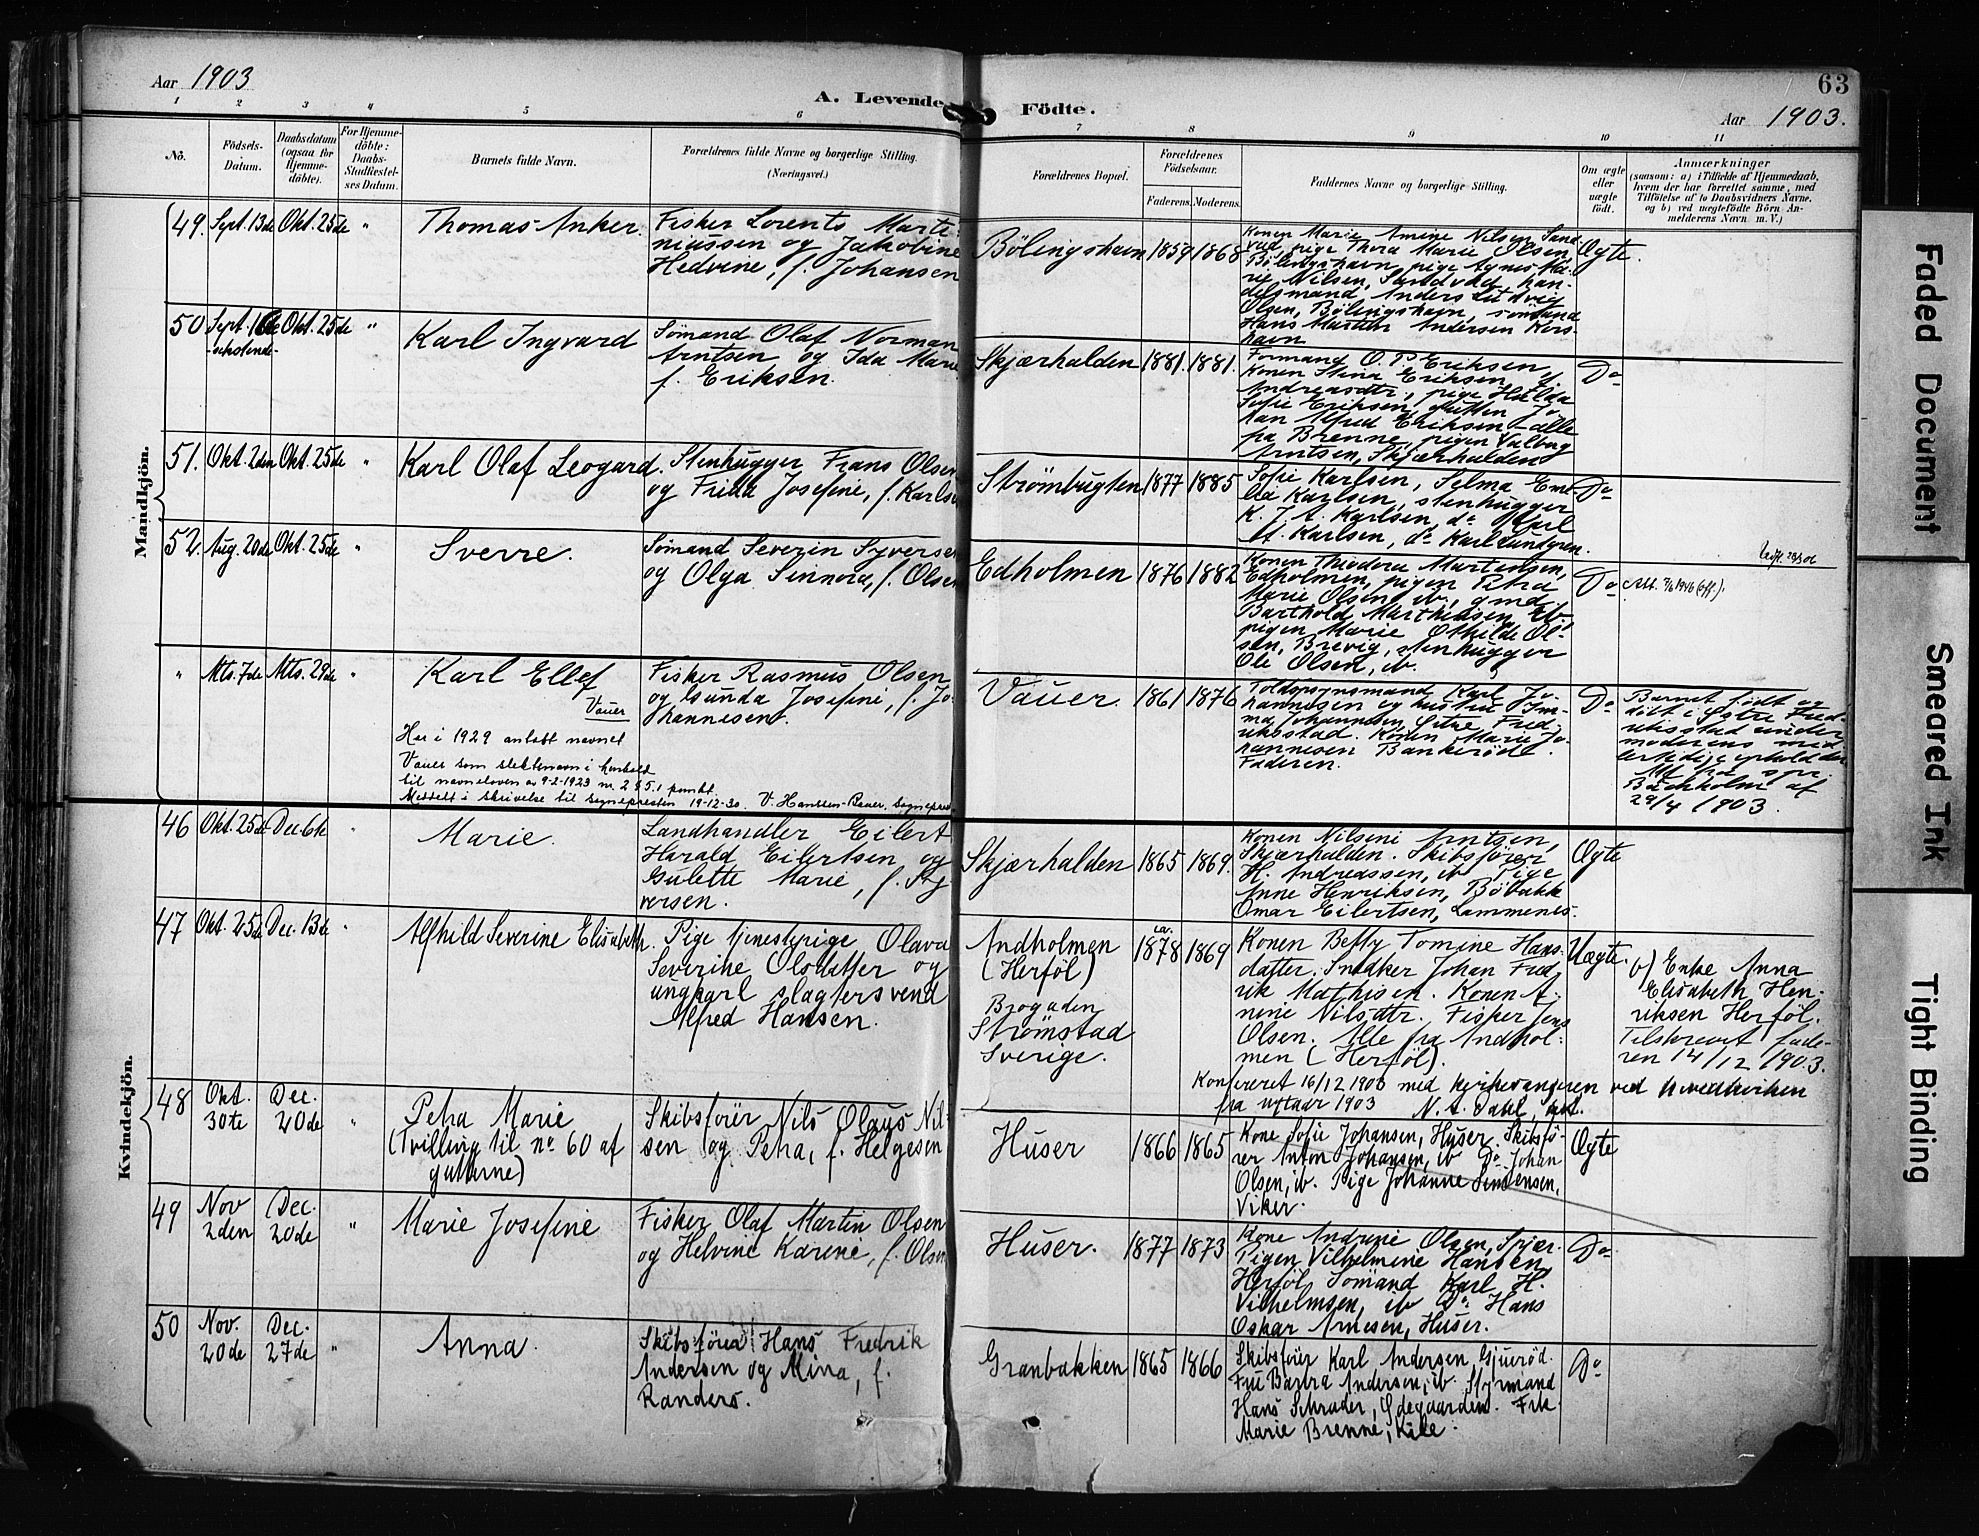 Aar 1903
A. Levende Födte.
63
Aar 1903.
1 2 3 4 5 6 7 8 9 10 11
No.
Födsels-
Datum.
Daabsdatum
(ogsaa for
Hjemme-
döbte).
For Hjemme-
döbte:
Daabs-
Stadfæstel-
ses Datum.
Barnets fulde Navn.
Forældrenes fulde Navne og borgerlige Stilling.
(Næringsvei.)
Forældrenes Bopæl.
Forældrenes
Födselsaar.
Faderens. Moderens.
Faddernes Navne og borgerlige Stilling.
Om ægte
eller
uægte
födt.
Anmærkninger
(saasom: a) i Tilfælde af Hjemmedaab,
hvem der har forrettet samme, med
Tilföielse af to Daabsvidners Navne.
og b) ved uægtefödte Börn An-
melderens Navn m. V.)
Mandkjön.
49. Sept. 13de Okt. 25de "
Thomas Anker.
Fisker Lorents Marti-
niussen og Jakobine
Hedvine, f. Johansen
Bölingshavn 1859 1868
Konen Marie Amine Nilsen Sand
vad, pige Thora Marie Olsen,
Bölingshavn, pige Agnes Ma-
rie Nilsen, Sandvad, han-
delsmand Anders Ludvig
Olsen, Bölingshavn, sömand
Hans Martin Andersen Kors-
havn
Ægte.
50 Sept. Okt. 25de "
Karl Ingvard
Sömand Olaf Norman
Arntsen og Ida Marie
f. Eriksen.
Skjærhalden 1881. 1881.
Formand O. P. Eriksen,
Konen Stina Eriksen, f.
Andreasdtr, pige Hulda
Sofie Eriksen, gutten Jo-
han Alfred Eriksen - alle
fra Brenne, pigen Valborg
Arntsen, Skjærhalden
Do
51. Okt. 2den Okt. 25de "
Karl Olaf Leogard.
Stenhugger Frans Olsen
og Frida Josefine, f. Karlsen
Strömbugten 1877 1885
Sofie Karlsen, Selma Emi-
lia Karlsen, stenhugger
K. J. A. Karlsen, do Karl
A. Karlsen, do Karl Lundgren.
Do
52. Aug. 20de Okt. 25de "
Sverre.
Sömand Severin Syversen
og Olga Sinnora, f. Olsen
Edholmen 1876 1882
Konen Theodora Martinsen,
Edholmen, pigen Petra
Marie Olsen, ib., gmd.
Barthold Marthinsen, ib.
pigen Marie Othilde Ol-
sen, Brevig, stenhugger
Ole Olsen, ib.
Do
" Mts. 7de Mts. 29de "
Karl Ellef
Vauer
Har i 1929 antatt navnet
Vauer som slektsnavn i henhold
til navneloven av 9-2-1923 nr. 2 § 5.1 punkt.
Meddelt i skrivelse til sognepresten 19-12-30.
Fisker Rasmus Olsen
og Gunda Josefine, f. Jo-
hannesen.
Vauer. 1861 1876
Toldopsynsmand Karl Jo-
hannesen og hustru Em-
ma Johannesen, Østre Fred-
rikstad. Konen Marie Jo-
hannesen Bankeröd.
Faderen.
Do
Barnet födt og
döbt i Østre Fred-
rikstad under
moderens mid-
lertidige ophold der
29/4 1903.
Kvindekjön.
46 Okt. 25de Dec. 6te "
Marie.
Landhandler Eilert
Harald Eilertsen og
Gulette Marie, f. Sy-
versen.
Skjærhalden 1865 1869.
Konen Nilsine Arntsen,
Skjærhalden. Skibsförer
H. Andreassen, ib. Pige
Anne Henriksen, Böbakk
Omar Eilertsen, Lammenes.
Ægte
47 Okt. 25de Dec. 13de "
Alfhild Severine Elisabeth.
Pige tjenestepige Olava
Severine Olsdatter og
ungkarl slagtersvend
Alfred Hansen.
Andholmen
(Herföl)
Strömstad
Sverige.
ca.
1878 1869
Konen Betty Tomine Hans-
datter. Snedker Johan Fred-
rik Mathisen. Konen A-
nine Nilsdtr. Fisker Jens
Olsen. Alle fra Andhol-
men (Herföl).
Uægte.
b) Enke Anna
Elisabeth Hen-
riksen Herföl.
Tilskrevet fade-
ren 14/12 1903.
Konfereret 16/12 1903 med kirkesangeren ved hovedkirken
fra nytaar 1903 N. A. Dahl,
48 Okt.
30te
Dec.
20de "
Petra Marie
(Tvilling til no 60 af
guttene)
Skibsförer Nils Olaus Nil-
sen og Petra, f. Helgesen
Huser 1866 1865
Kone Sofie Johansen, Huser. Skibsfö-
rer Anton Johansen, ib. Do Johan
Olsen, ib. Pige Johanne
Viker.
Ægte
49 Nov
2den
Dec.
20de "
Marie Josefine
Fisker Olaf Martin Olsen
og Helvine Karine, f. Olsen
Huser. 1877 1873
Kone Andrine Olsen, Spjær.
Pigen Vilhelmine Hansen,
Herföl, Sömand Karl H.
Vilhelmsen, ib. Do Hans
Oskar Arnesen, Huser.
Do
50 Nov.
20de
Dec.
27de "
Anna.
Skibsförer Hans Fredrik
Andersen og Mina, f.
Randers.
Granbakken 1865 1866
Skibsförer Karl Andersen, Gjuröd.
Fru Barbra Andersen, ib. Styrmand
Hans Schrader, Ödegaarden. Frk.
Marie Brenne, Kile.
Do
Faded Document
Smeared Ink
Tight Binding